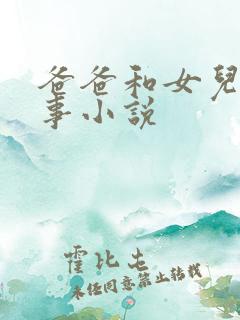 爸爸和女兒
事小说
霍比屯
未经同意禁止转载